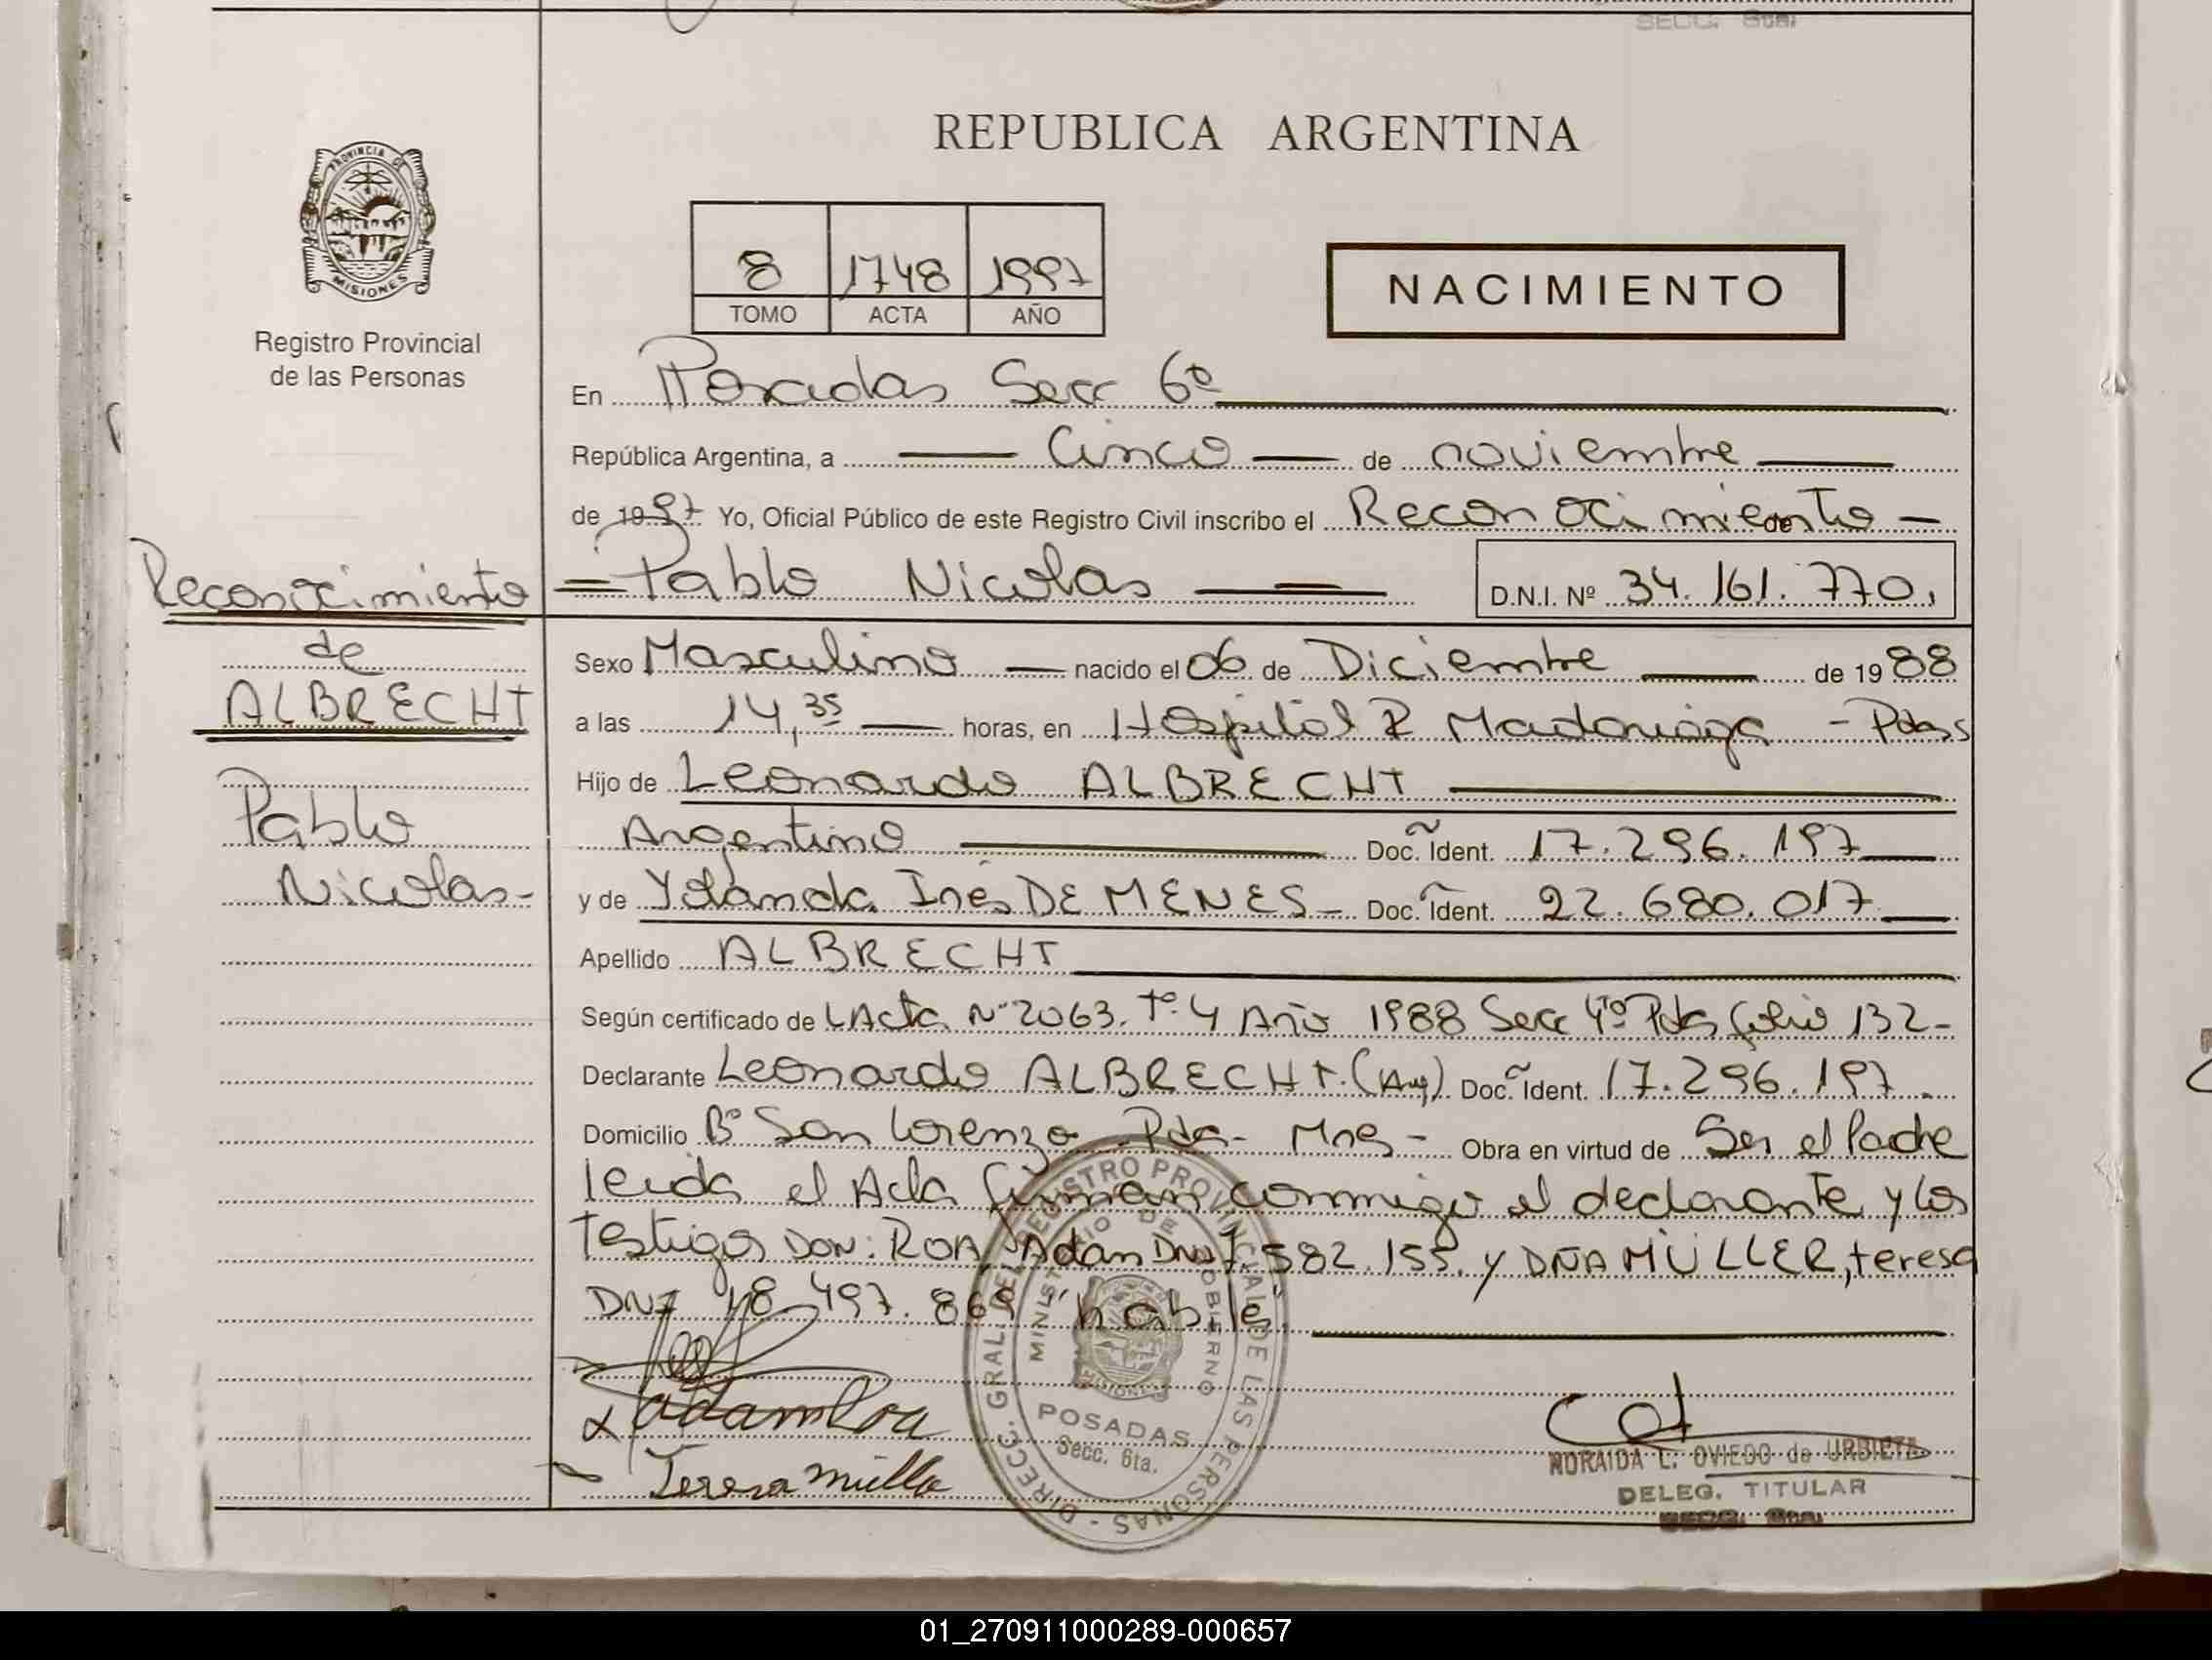 SECC. 6ta.
REPUBLICA ARGENTINA
PROVINCIA DE
MISIONES
Registro Provincial
de las Personas
8 1748 1997
TOMO ACTA AÑO
NACIMIENTO
En Posadas Secc 6º
República Argentina, a Cinco de noviembre
de 1997 Yo, Oficial Público de este Registro Civil inscribo el Reconocimiento de
Pablo Nicolas D.N.I. Nº 34.161.770,
Reconocimiento
de
ALBRECHT
Pablo
Nicolas-
Sexo Masculino nacido el 06 de Diciembre de 1988
a las 14,35 horas, en Hospital R Madariaga - Pdas
Hijo de Leonardo ALBRECHT
Argentino Doc. Ident. 17.296.197
y de Yolanda Inés DE MENES- Doc. Ident. 22.680.017
Apellido ALBRECHT
Según certificado de L Acta Nº 2063. Tº 4 Año 1988 Secc 4º Pdas folio 132-
Declarante Leonardo ALBRECHT. (Arg) Doc. Ident. 17.296.197.
Domicilio Bº San Lorenzo - Pdas- Mnes - Obra en virtud de Ser el Padre
leida el Acta firman conmigo el declarante y los
Testigos DON: ROA, Adan DNI 7.582.155. y DÑA MÜLLER, teresa
DNI 18.497.869 "hábiles
DIRECC. GRAL. DEL REGISTRO PROVINCIAL DE LAS PERSONAS -
MINISTERIO DE GOBIERNO
MISIONES
POSADAS
Secc. 6ta.
Adam Roa
Teresa Muller
NORAIDA L. OVIEDO de URBIETA
DELEG. TITULAR
SECC. 6ta.
01_270911000289-000657